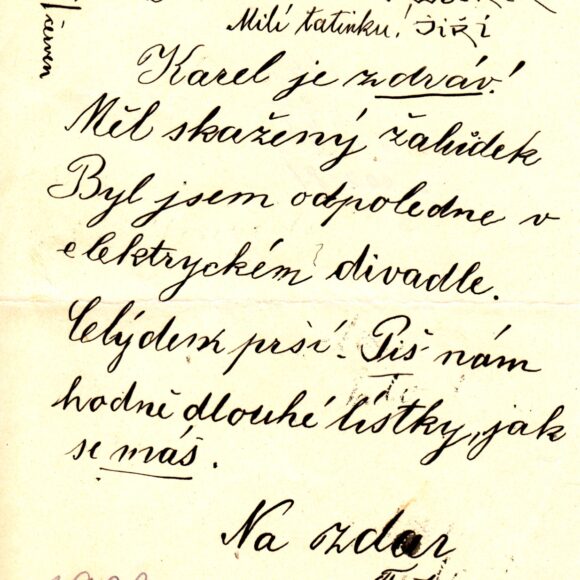 Milí tatínku! Jiří
Karel je zdráv!
Měl skažený žalůdek
Byl jsem odpoledne v
elektryckém divadle.
Celýdem prší - Piš nám
hodně dlouhé lístky, jak
se máš.
Na zdar